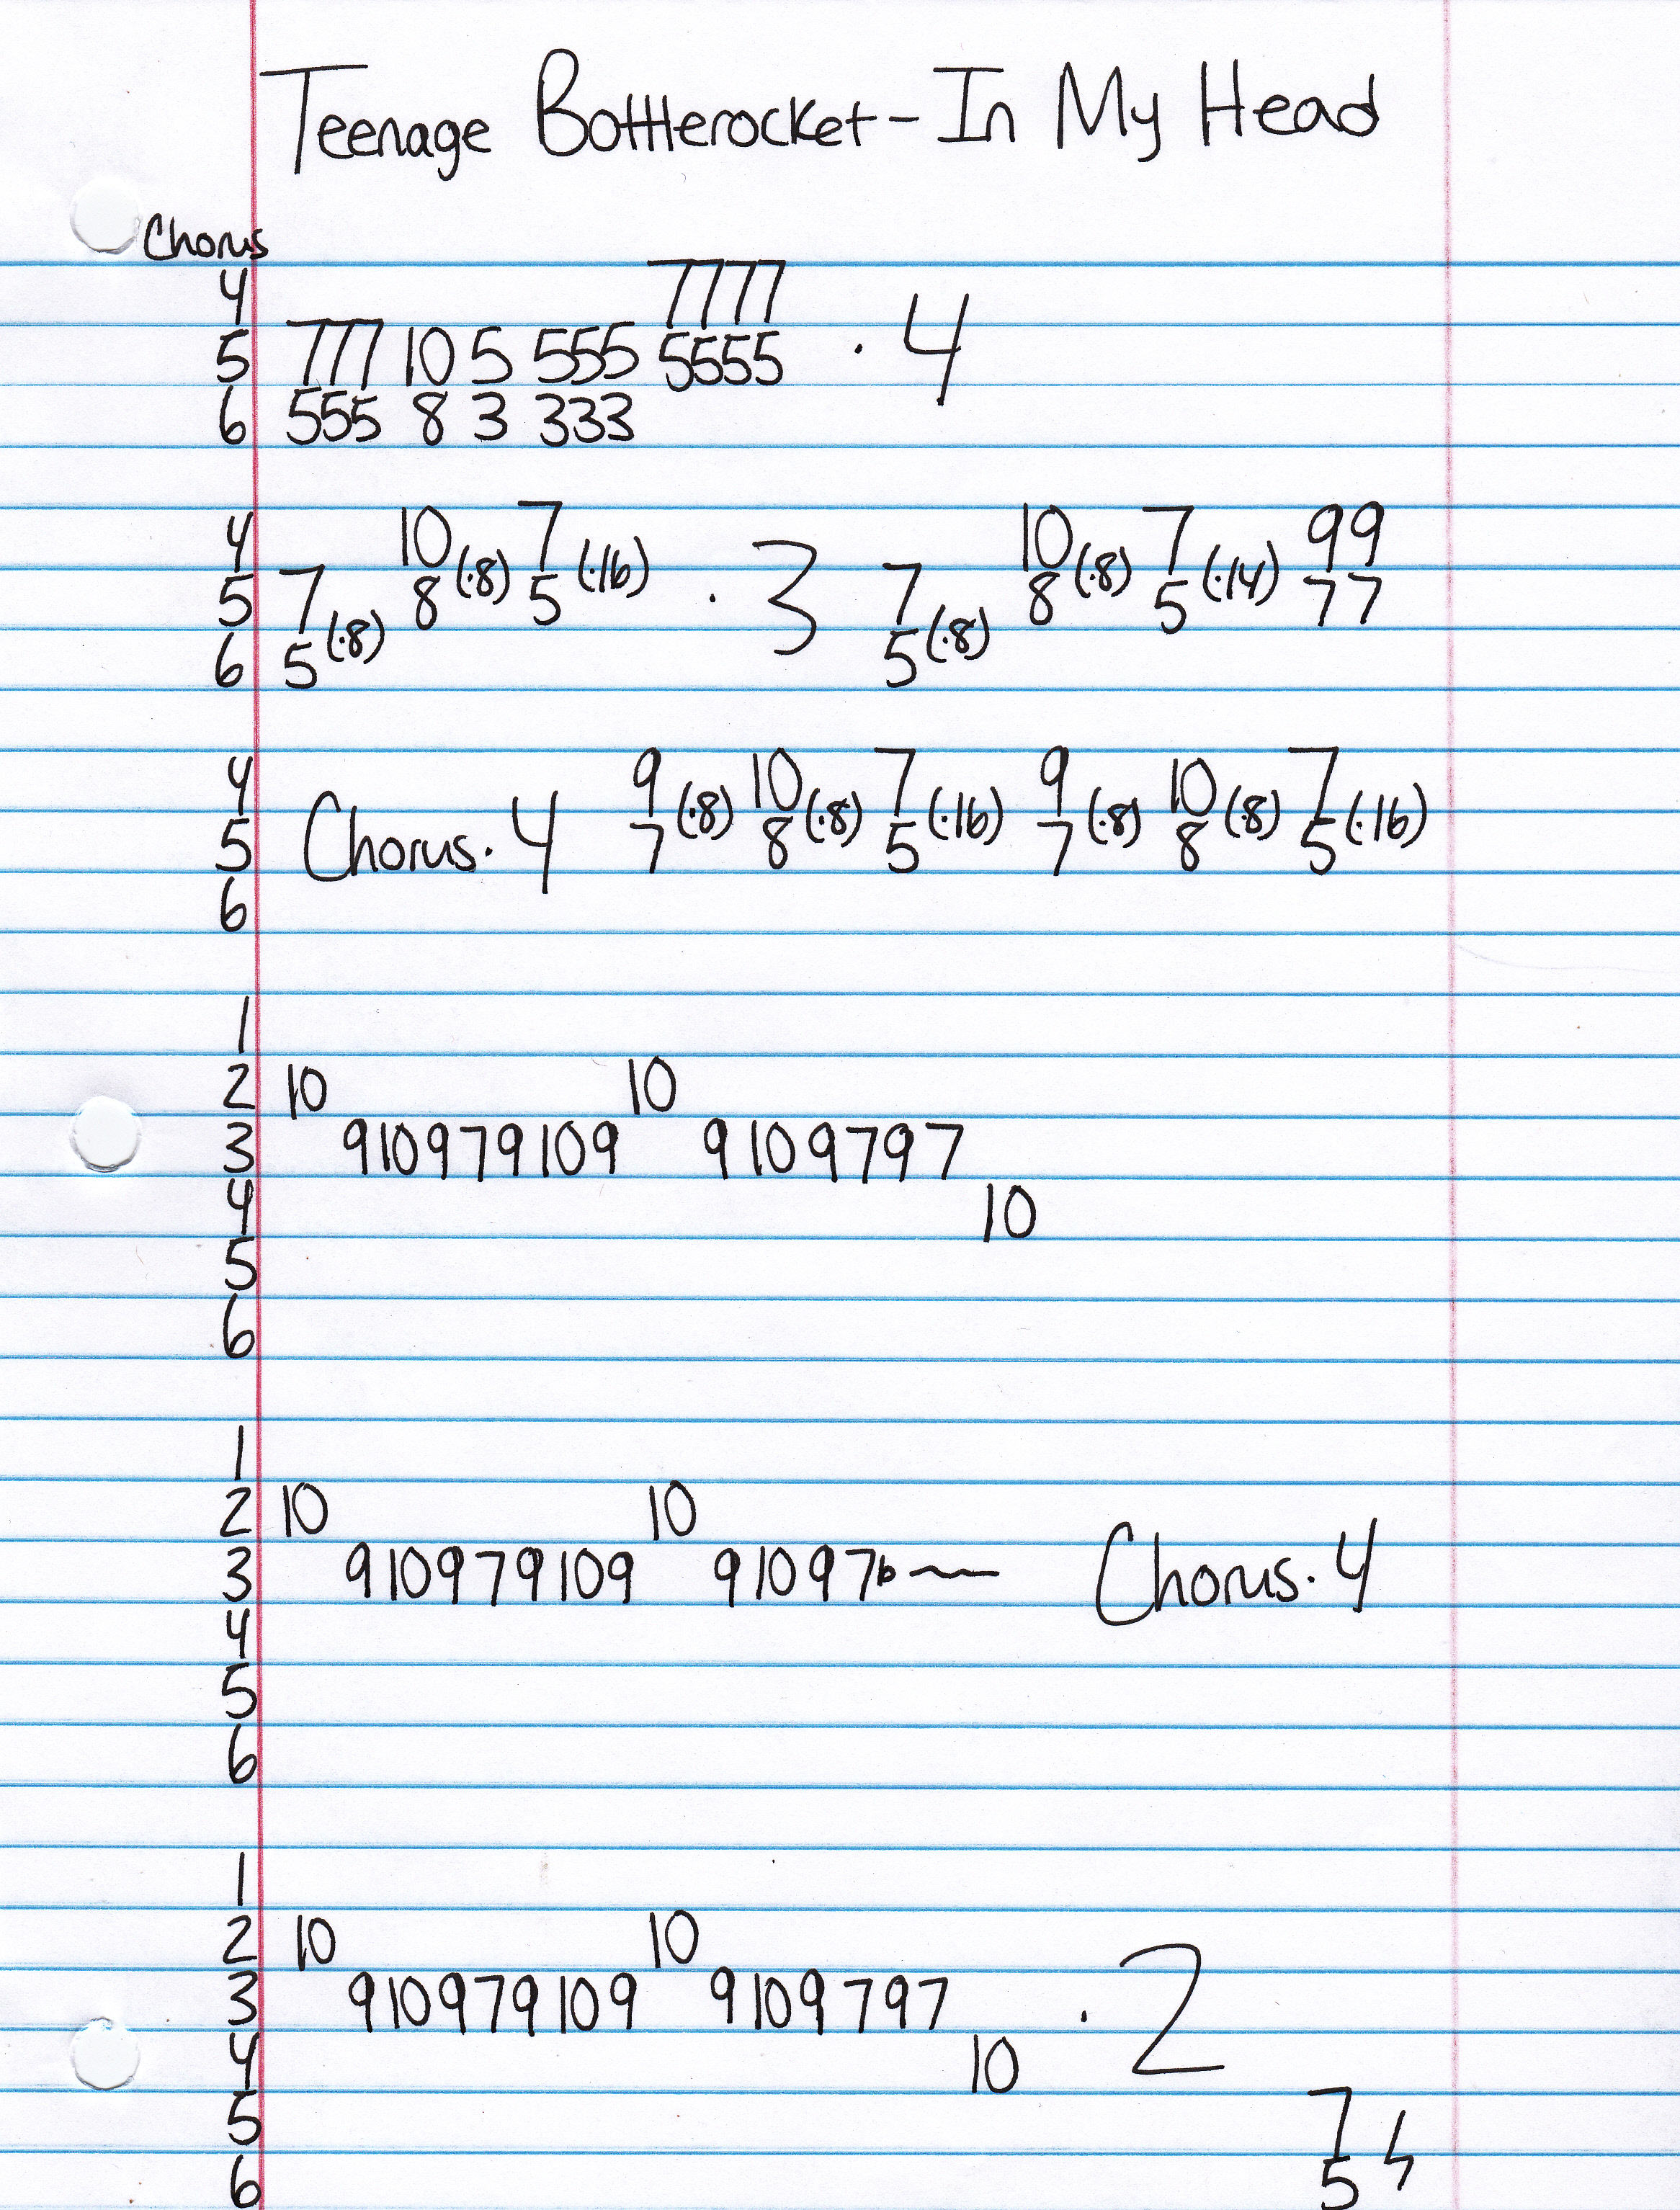 Teenage Bottlerocket - In My Head
Chorus
4 7777
5 777 10 5 555 5555 · 4
6 555 8 3 333
4 10 (·8) 7 (·16) 10 (·8) 7 (·14) 99
5 7 (·8) 8 5 · 3 7 (·8) 8 5 77
6 5 5
4 9 (·8) 10 (·8) 7 (·16) 9 (·8) 10 (·8) 7 (·16)
5 Chorus · 4 7 8 5 7 8 5
6
1
2 10 10
3 9 10 9 7 9 10 9 9 10 9 7 9 7
4 10
5
6
1
2 10 10
3 9 10 9 7 9 10 9 9 10 9 7 b ~ Chorus · 4
4
5
6
1
2 10 10
3 9 10 9 7 9 10 9 9 10 9 7 9 7 · 2
4 10
5 7
6 5